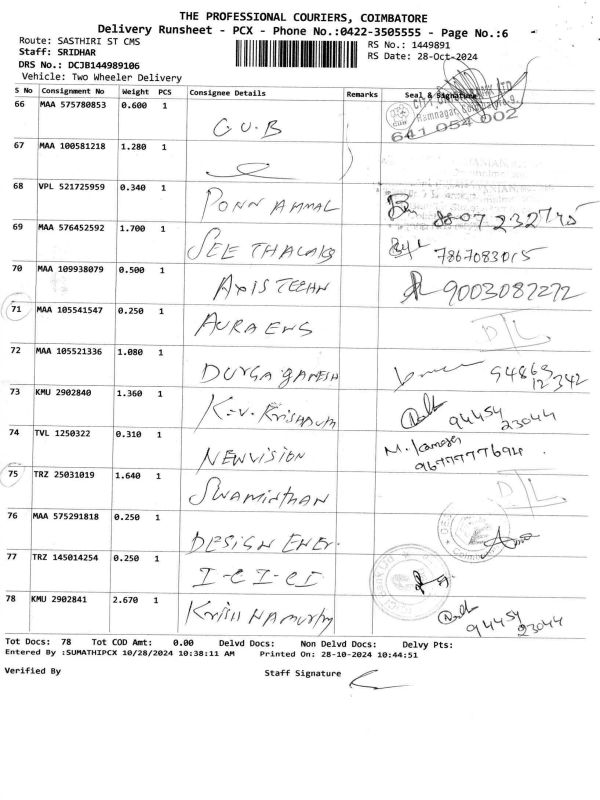 THE PROFESSIONAL COURIERS, COIMBATORE
Delivery Runsheet - PCX - Phone No.:0422-3505555 - Page No.:6
Route: SASTHIRI ST CMS
Staff: SRIDHAR
DRS No.: DCJB144989106
Vehicle: Two Wheeler Delivery
RS No.: 1449891
RS Date: 28-Oct-2024
S No Consignment No Weight PCS Consignee Details Remarks Seal & Signature
66 MAA 575780853 0.600 1
C.U.B
641 054 002
67 MAA 100581218 1.280 1
68 VPL 521725959 0.340 1
PONN AMMAL
69 MAA 576452592 1.700 1
7867083015
70 MAA 109938079 0.500 1
AXIS TECHN 9003087272
71 MAA 105541547 0.250 1
AURA ENS DL
72 MAA 105521336 1.080 1
DURGA GANESH 94863
12342
73 KMU 2902840 1.360 1
K.V. 94454
23044
74 TVL 1250322 0.310 1
NEWVISION
75 TRZ 25031019 1.640 1
SWAMINTHAN DL
76 MAA 575291818 0.250 1
DESIGN ENER.
77 TRZ 145014254 0.250 1
78 KMU 2902841 2.670 1
94454
23044
Tot Docs: 78 Tot COD Amt: 0.00 Delvd Docs: Non Delvd Docs: Delvy Pts:
Entered By :SUMATHIPCX 10/28/2024 10:38:11 AM Printed On: 28-10-2024 10:44:51
Verified By Staff Signature